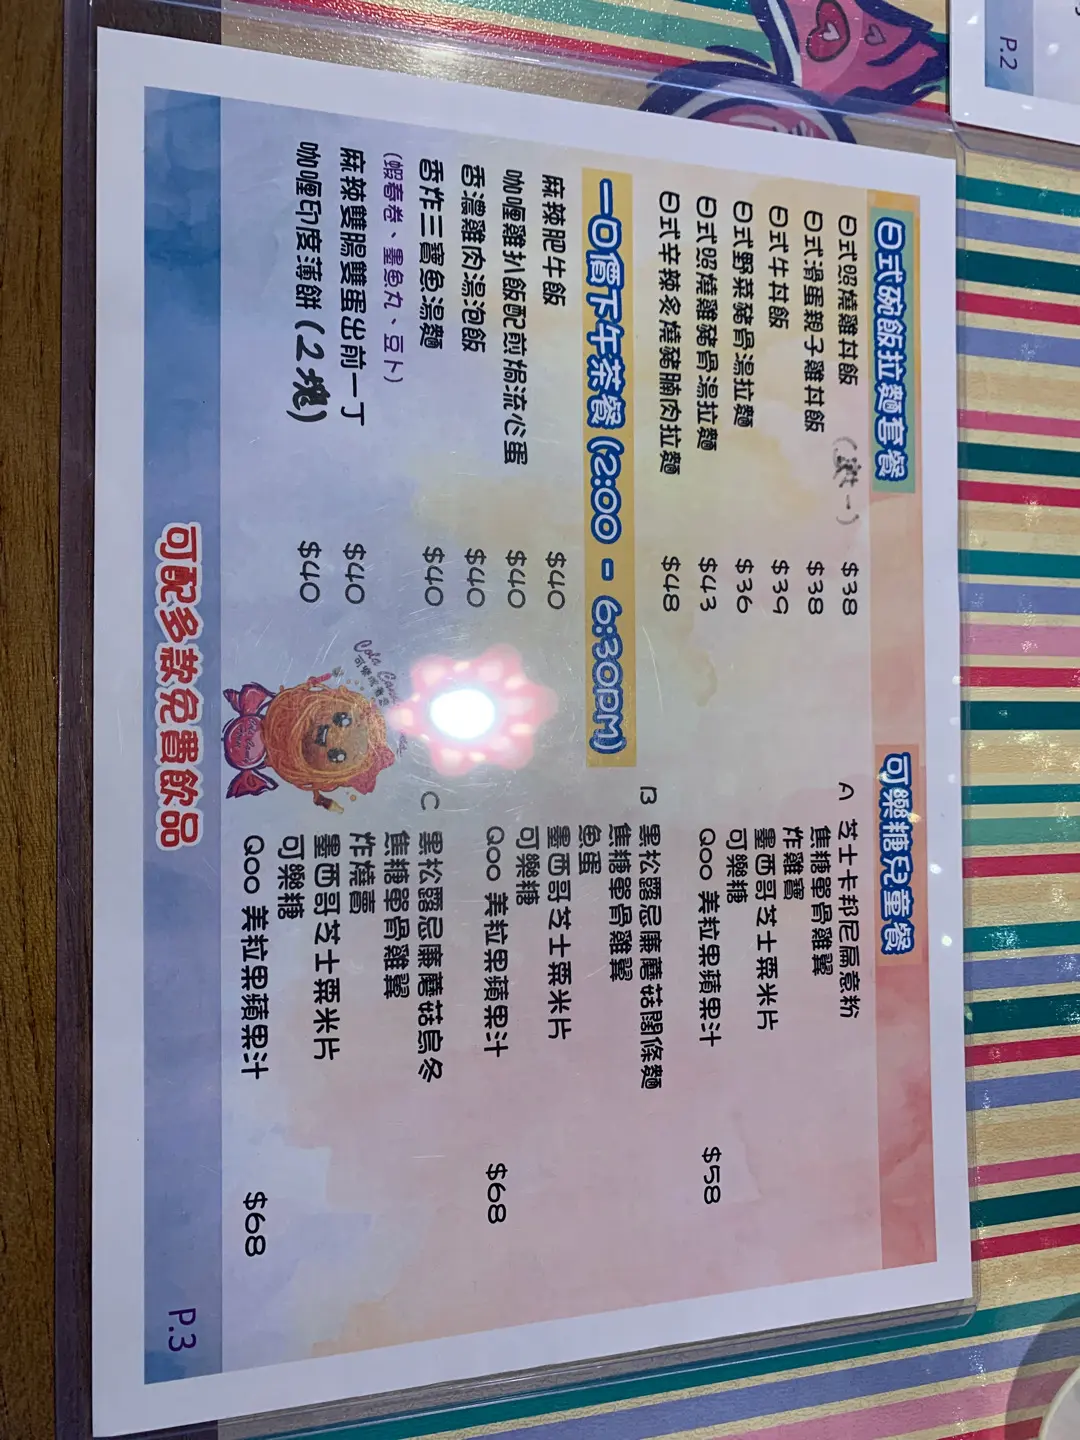 P.2
日式碗飯拉麵套餐
日式照燒雞丼飯 $38
日式滑蛋親子雞丼飯 $38
日式牛丼飯 $39
日式野菜豬骨湯拉麵 $36
日式照燒雞豬骨湯拉麵 $43
日式辛辣冬燒豬腩肉拉麵 $48
一口價下午茶餐 (2:00 - 6:30PM)
麻辣肥牛飯 $40
咖喱雞扒飯配煎焗流心蛋 $40
香濃雞肉湯泡飯 $40
香炸三寶魚湯麵 $40
(蝦春卷、墨魚丸、豆卜)
麻辣雙腸雙蛋出前一丁 $40
咖喱印度薄餅 (2塊) $40
可樂糖兒童餐
A 芝士卡邦尼扁意粉
焦糖單骨雞翼
炸雞寶
墨西哥芝士粟米片
可樂糖
Qoo 美粒果蘋果汁 $58
B 黑松露忌廉蘑菇闊條麵
焦糖單骨雞翼
魚蛋
墨西哥芝士粟米片
可樂糖
Qoo 美粒果蘋果汁 $68
C 黑松露忌廉蘑菇烏冬
焦糖單骨雞翼
炸燒賣
墨西哥芝士粟米片
可樂糖
Qoo 美粒果蘋果汁 $68
可配多款免費飲品
P.3